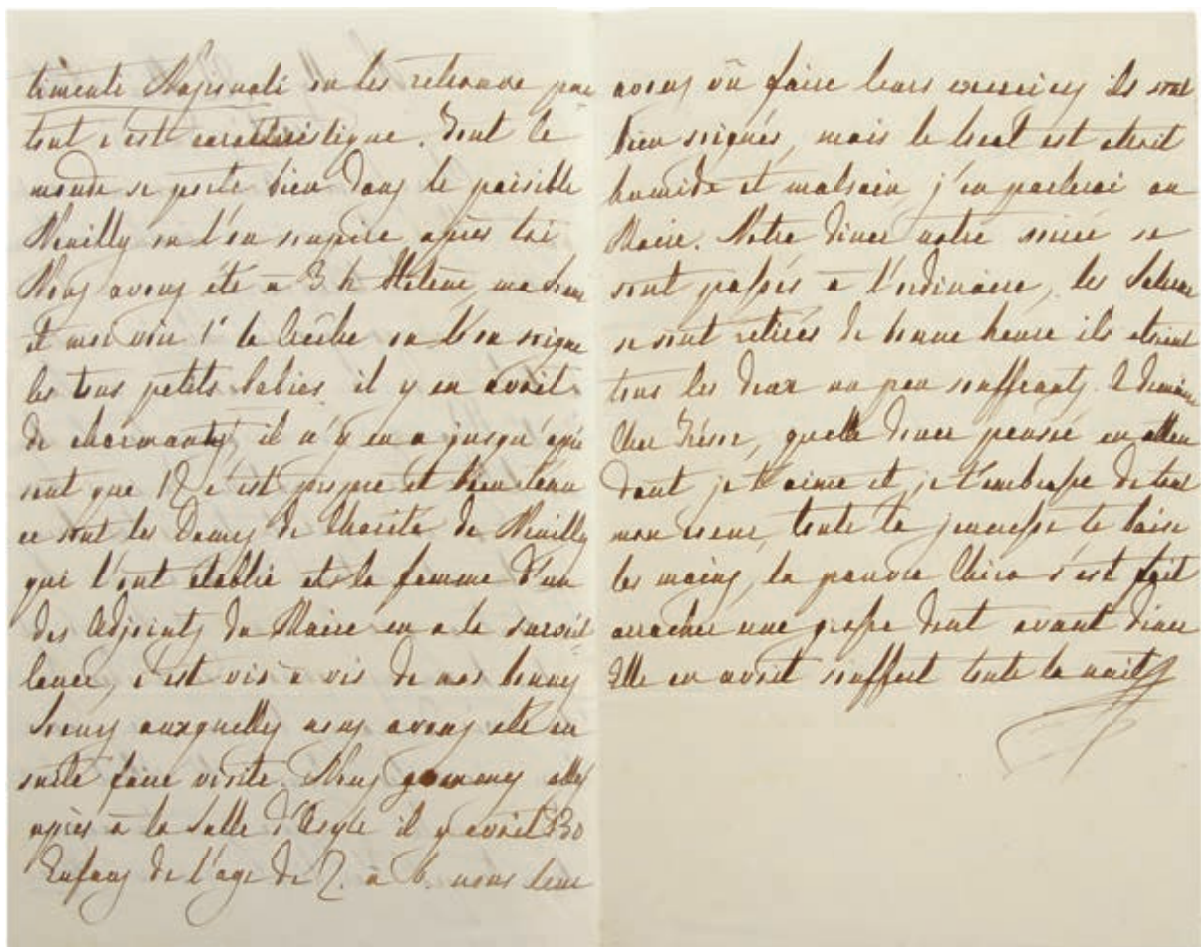 timents Nationali on les retrouve par
tout c'est caracteristique. Tout le
monde se porte bien dans le paisible
Neuilly ou l'on soupire après toi
Nous avons été à 3 h Hélène, ma Sœur
et moi voir 1° la Crêche ou l'on soigne
les tous petits babies il y en avoit
de charmants, il n'y en a jusqu'aprè
sent que 12 c'est propre et bien tenu
ce sont les Dames de Charité de Neuilly
qui l'ont établie et la femme d'un
des Adjoints du Maire en a la surveil
lance, c'est vis à vis de nos bonnes
Sœurs auxquelles nous avons été en
suite faire visite. Nous sommes allés
après à la Salle d'Asyle il y avoit 130
Enfans de l'age de 2. à 6. nous leur
avons vû faire leurs exercices ils sont
bien soignés, mais le local est etroit
humide et malsain j'en parlerai au
Maire. Notre diner notre soirée se
sont passés à l'ordinaire, les
se sont retirés de bonne heure ils etoient
tous les deux un peu souffrants. à demain
Cher Trésor, quelle douce pensée en atten
dant je t'aime et je t'embrasse de tout
mon cœur, toute la jeunesse te baise
les mains, la pauvre Chica s'est fait
arracher une grosse dent avant diner
Elle en avoit souffert toute la nuit